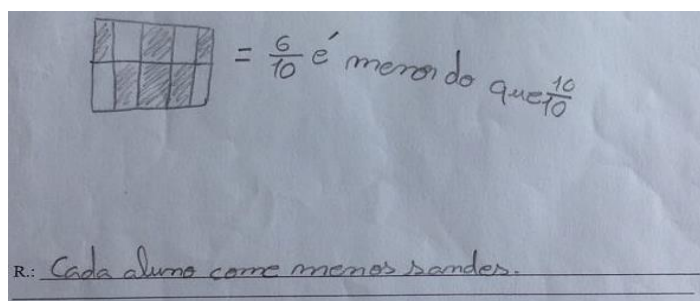 = 6/10 é menor do que 10/10
R.: Cada aluno come menos sandes.